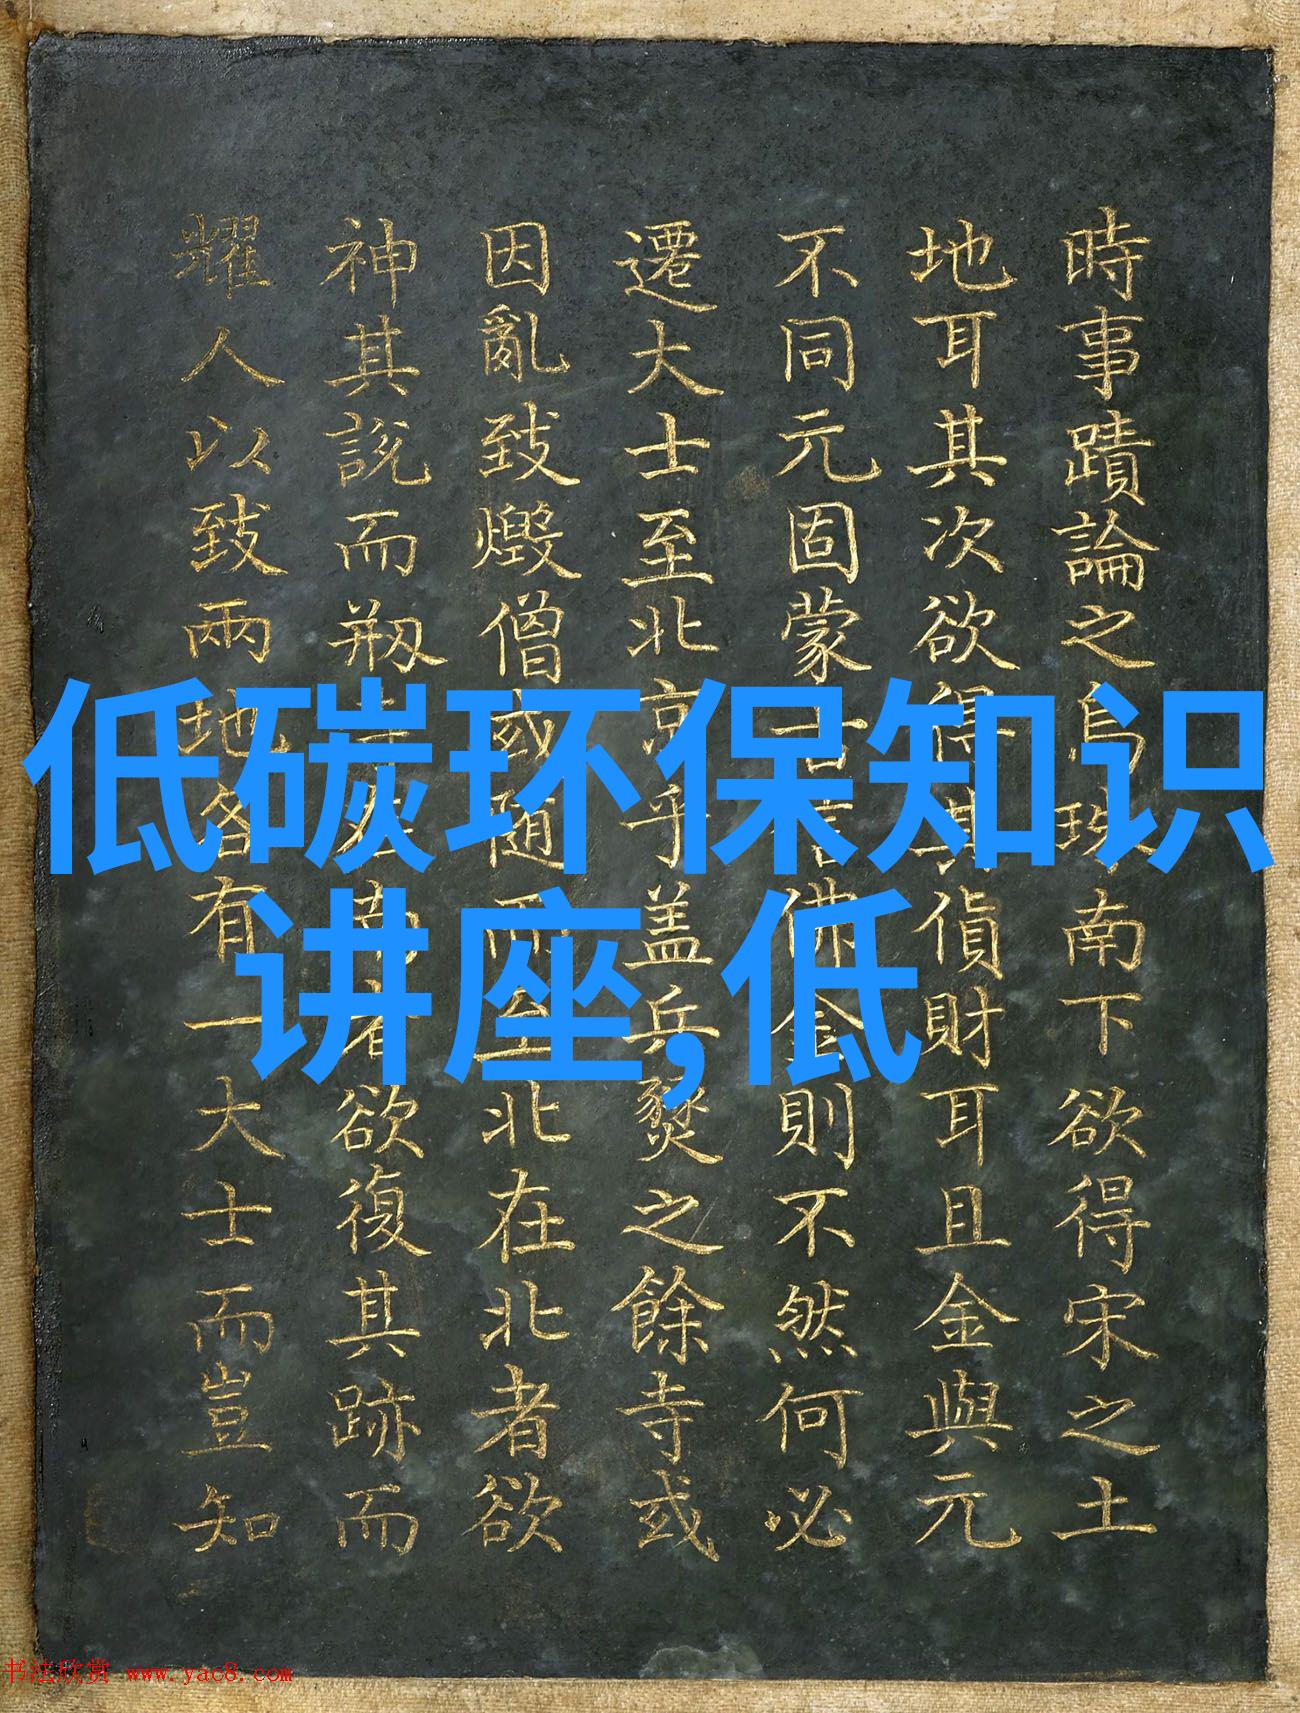 時事蹟論之烏珠南下欲得宋之土
地耳其次欲得其貨財耳且金與元
不同元固蒙古信佛金則不然何必
遷大士至北京乎盖兵燹之餘寺或
因亂致燬僧或隨而至北在北者欲
神其說而剏南者欲復其跡而
耀人以致兩地各有一大士而豈知
低碳环保知识
讲座,低
书法欣赏 www.yac8.com